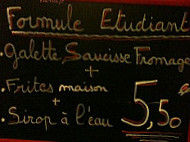 Formule Etudiant
. Galette Saucisse Fromage
+
. Frites maison
+
. Sirop à l'eau
5,50